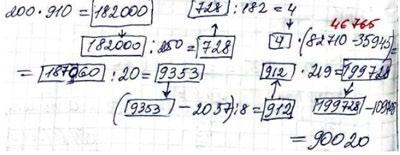 200 · 910 = 182000 728 : 182 = 4
46765
182000 : 250 = 728 4 · (82710 - 35945) =
= 187060 : 20 = 9353 912 · 219 = 199728
(9353 - 2057) : 8 = 912 199728 -
= 90020